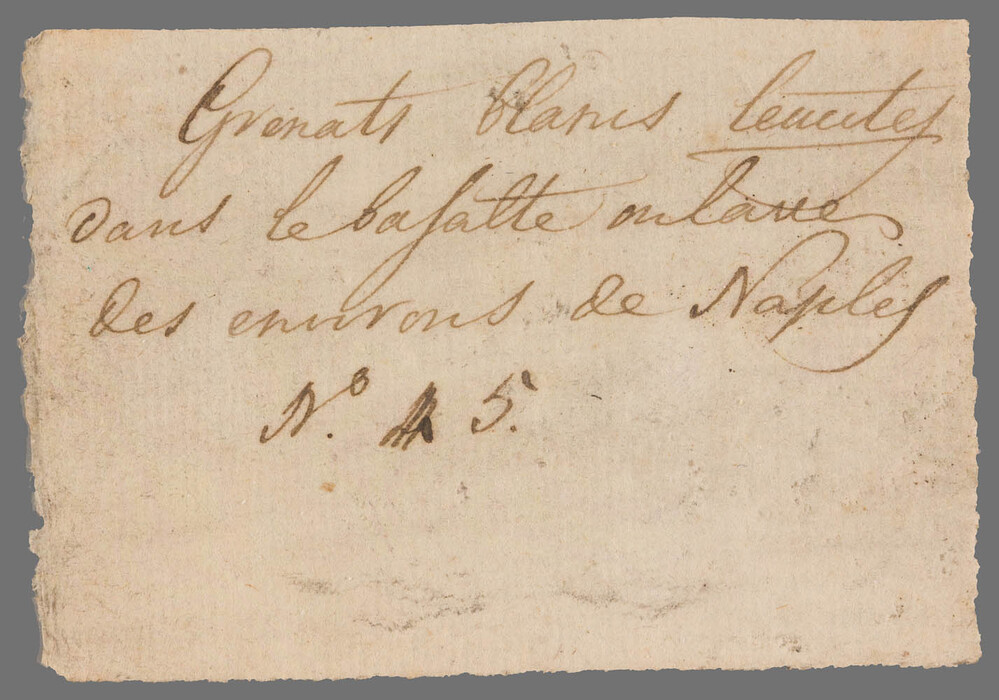 Grenats blancs leucites
dans le basalte ou lave
des environs de Naples
N.º 5.